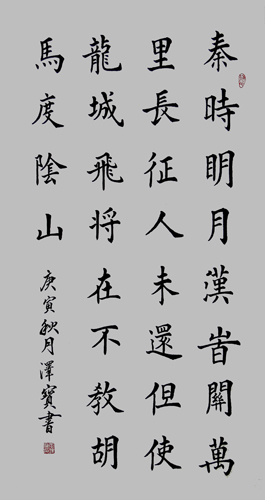 秦時眀月漢旹關萬
里長征人未還但使
龍城飛将在不教胡
馬度陰山
庚寅秋月澤寶書